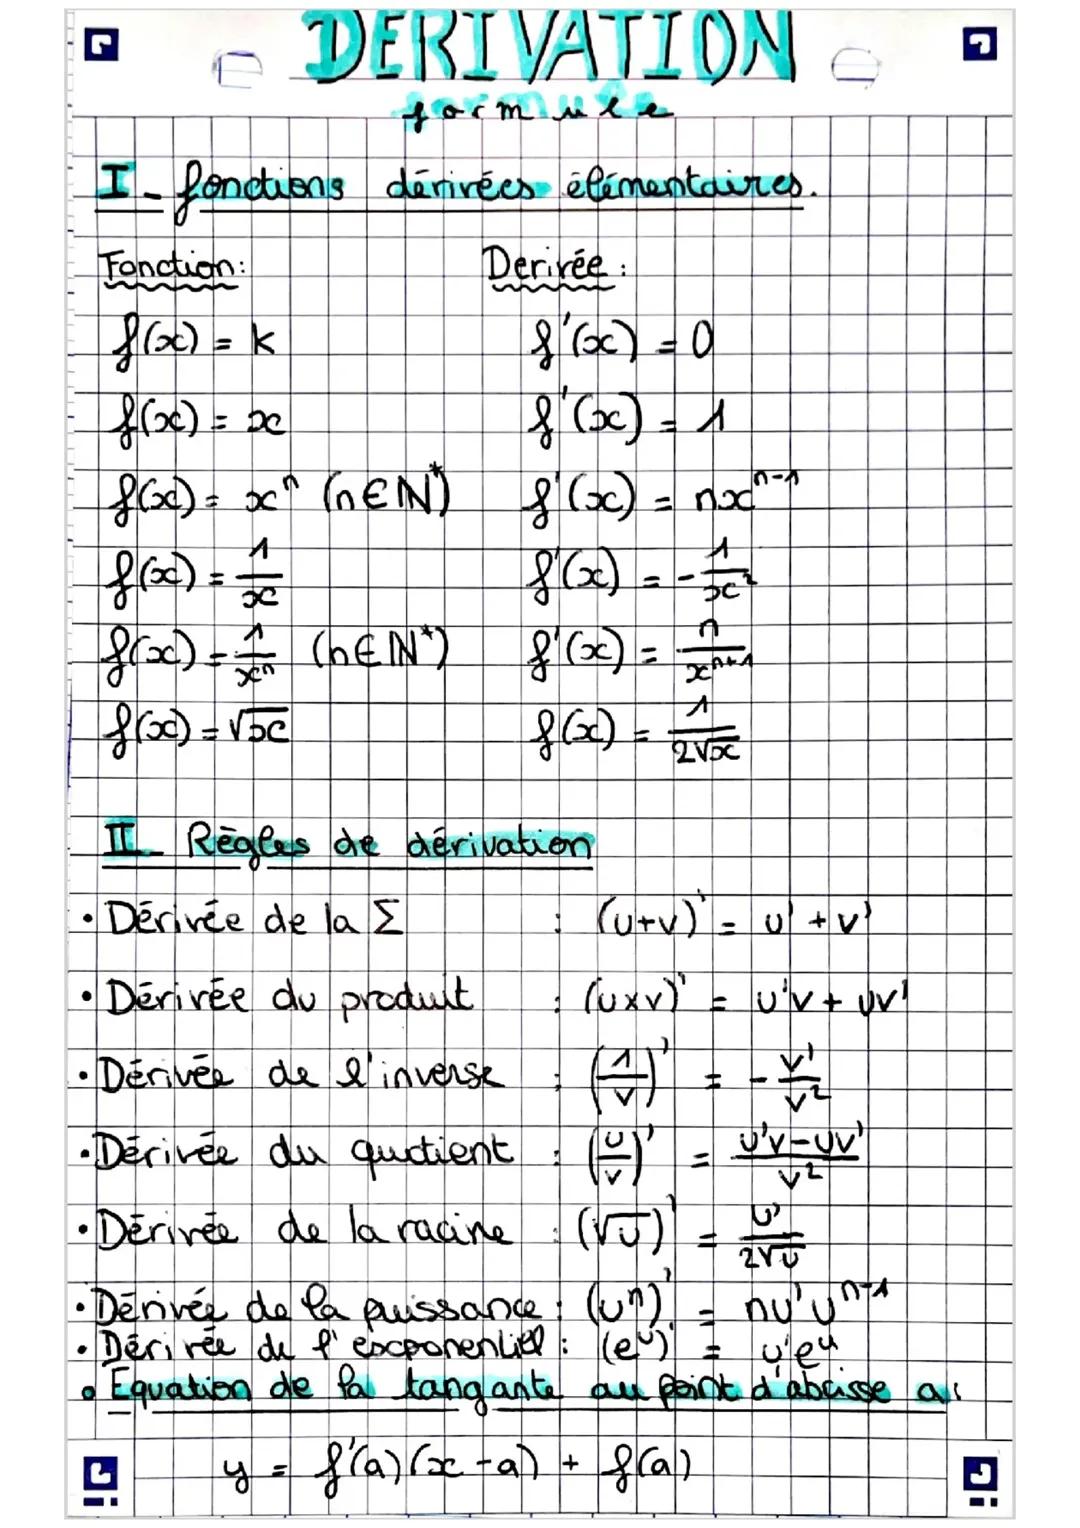 DERIVATION
formule
I - fonctions dérivées élémentaires.
Fonction: Derivée :
f(x) = k f'(x) = 0
f(x) = x f'(x) = 1
f(x) = xⁿ (n∈ℕ*) f'(x) = nxⁿ⁻¹
f(x) = 1/x f'(x) = -1/x²
f(x) = 1/xⁿ (n∈ℕ*) f'(x) = n/xⁿ⁺¹
f(x) = √x f(x) = 1/(2√x)
II - Règles de dérivation
• Dérivée de la Σ : (u+v)' = u' + v'
• Dérivée du produit : (u×v)' = u'v + uv'
• Dérivée de l'inverse : (1/v)' = - v'/v²
• Dérivée du quotient : (u/v)' = (u'v-uv')/v²
• Dérivée de la racine : (√u)' = u'/(2√u)
• Dérivée de la puissance : (uⁿ)' = nu'uⁿ⁻¹
• Dérivée de l'exponentiel : (eᵘ)' = u'eᵘ
• Equation de la tangante au point d'abcisse a :
y = f'(a)(x-a) + f(a)